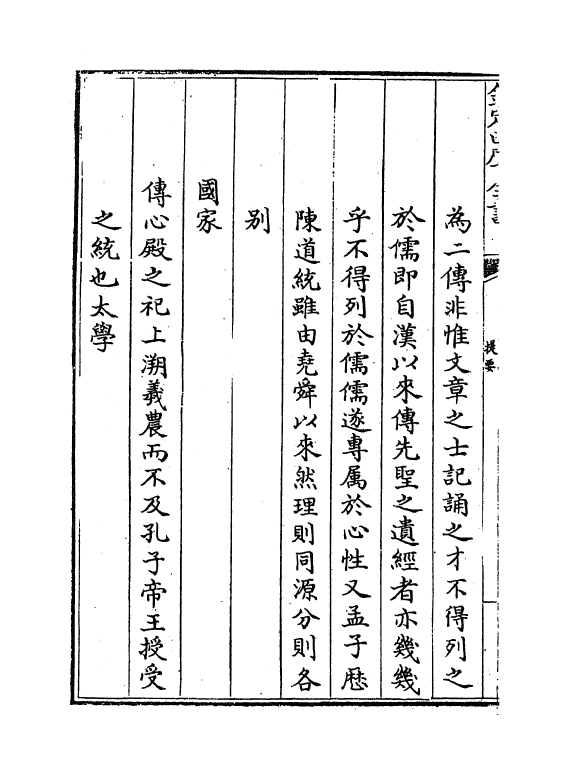 欽定四庫全書
提要
為二傳非惟文章之士記誦之才不得列之
於儒即自漢以來傳先聖之遺經者亦幾幾
乎不得列於儒儒遂專属於心性又孟子歴
陳道統雖由堯舜以來然理則同源分則各
別
國家
傳心殿之祀上溯羲農而不及孔子帝王授受
之統也太學